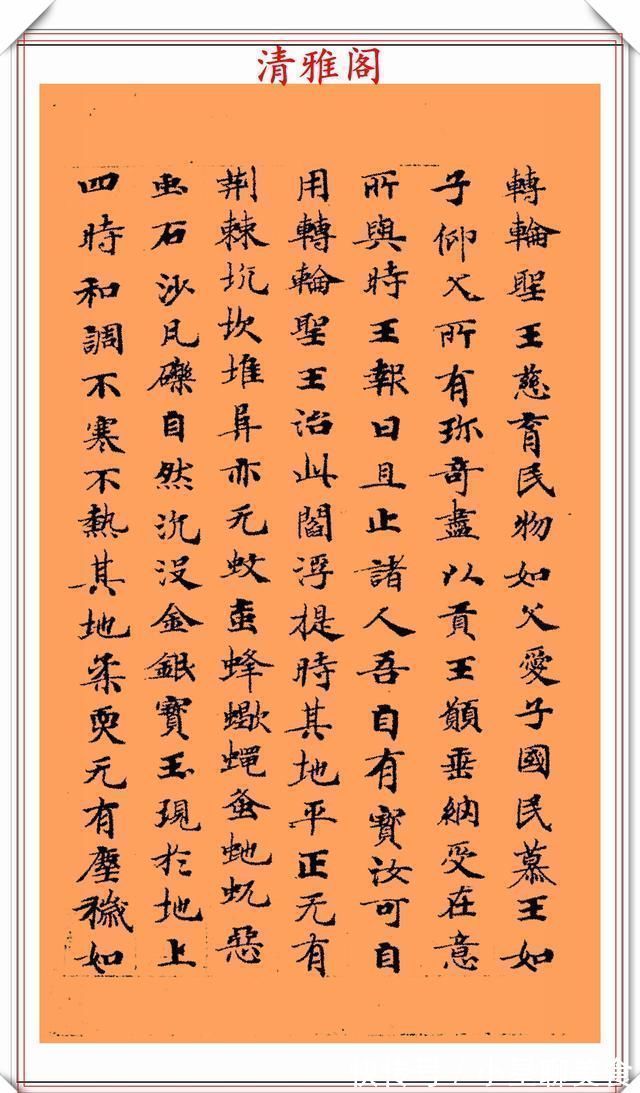 清雅阁
轉輪聖王慈育民物如父愛子國民慕王如
子仰父所有珎奇盡以貢王願垂納受在意
所與時王報曰且止諸人吾自有寳汝可自
用轉輪聖王治此閻浮提時其地平正无有
荆棘坑坎堆阜亦无蚊虻蜂蠍蠅蚤虵蚖惡
虫石沙凡礫自然沉没金銀寳玉現於地上
四時和調不寒不熱其地柔耎元有塵穢如